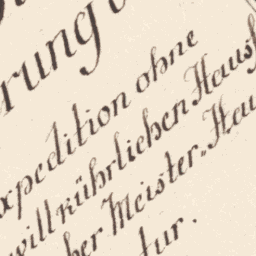 rung
xpedition ohne
willkührlichen Haus
her Meister-Hau
tur.